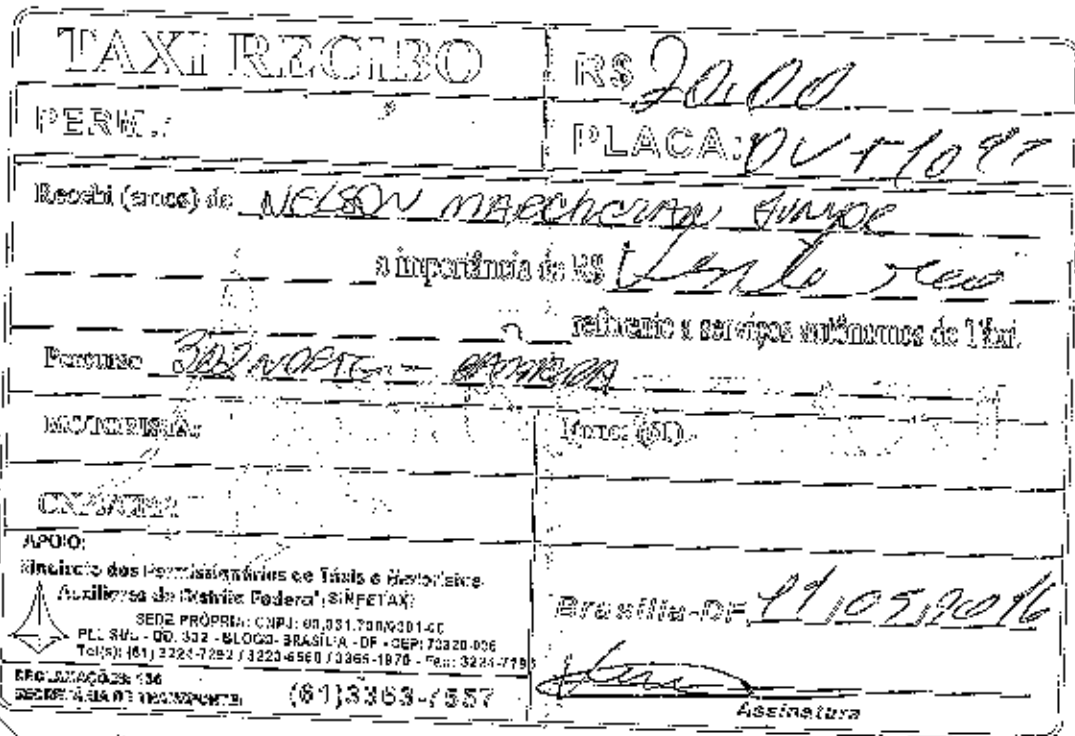 TAXI RECIBO
R$ 20,00
PERM.:
PLACA:
Recebi (emos) de NELSON MARCHEZAN JUNIOR
a importância de R$ Vinte reais
referente a serviços autônomos de Táxi.
Percurso 302 NORTE - CAMARA
MOTORISTA:
Fone: (61)
CNPJ/CPF:
APOIO:
Sindicato dos Permissionários de Táxis e Motoristas
Auxiliares do Distrito Federal (SINPETAXI)
SEDE PRÓPRIA: CNPJ:
BRASÍLIA - DF - CEP:
Tel(s): (61) 3224-7292 / 3223-6560 / 3365-1970 - Fax: 3224-7193
Brasília-DF, 11/05/2016
RECLAMAÇÕES: 156
SECRETARIA DE TRANSPORTE:
(61)3363-7557
Assinatura